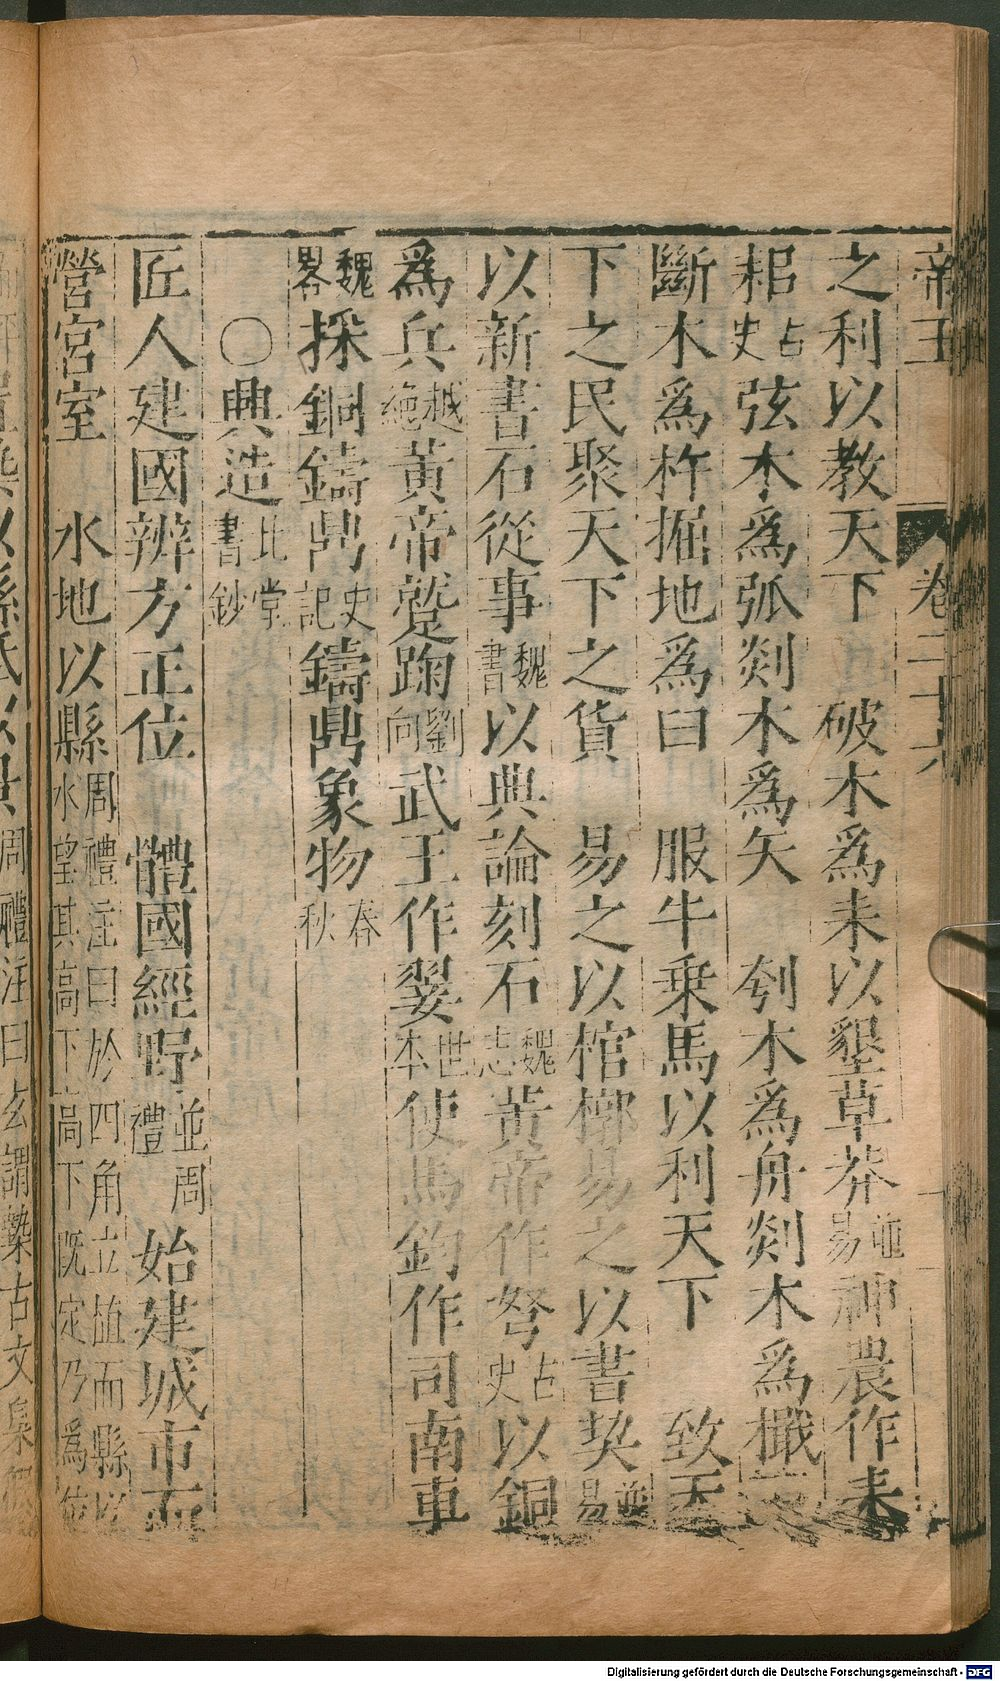 帝王 卷二十六
之利以教天下 破木爲耒以墾草莽並易神農作耒
耜古史弦木爲弧剡木爲矢 刳木爲舟剡木爲檝
斷木爲杵掘地爲臼 服牛乗馬以利天下 致天
下之民聚天下之貨 易之以棺槨易之以書契並易
以新書石從事魏書以典論刻石魏志黃帝作弩古史以銅
爲兵越絶黃帝蹵踘劉向武王作翣世本使馬鈞作司南車
魏畧採銅鑄鼎史記鑄鼎象物春秋
○典造北堂書鈔
匠人建國辨方正位 體國經野並周禮始建城市而
營宮室 水地以縣周禮注曰於四角立植而縣以水望其高下高下既定乃爲位
周禮注曰玄謂槷古文臬假
Digitalisierung gefördert durch die Deutsche Forschungsgemeinschaft - DFG